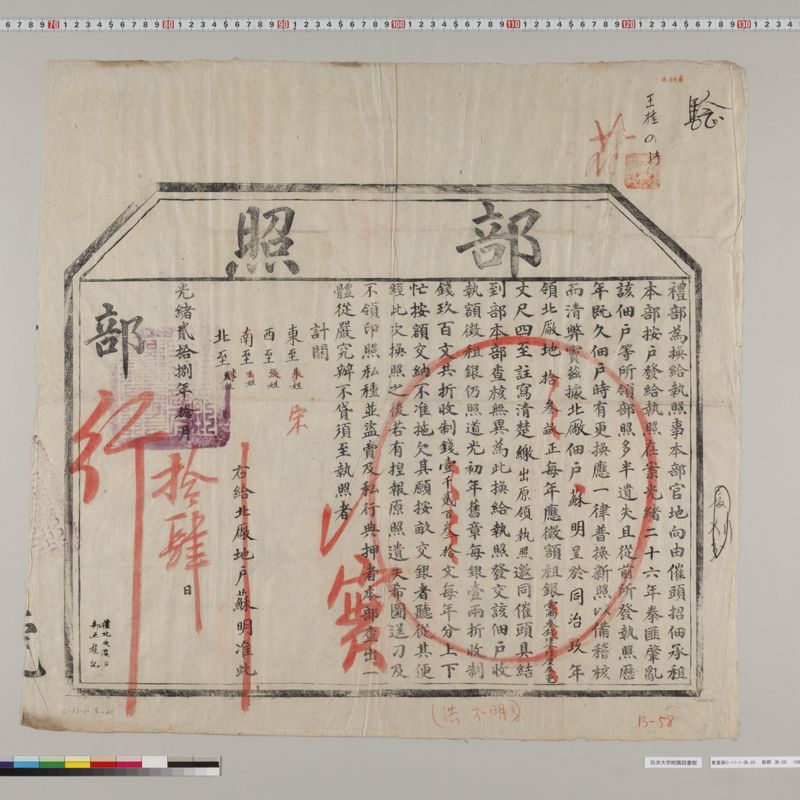 部照
禮部為換給執照事本部官地向由催頭招佃承租
本部按戶發給執照在案光緒二十六年拳匪肇亂
該佃戶等所領部照多半遺失且從前所發執照歷
年既久佃戶時有更換應一律普換新照以備稽核
而清弊竇茲據北廠佃戶蘇明呈於同治玖年
領北廠地拾叁畝正每年應徵額租銀
丈尺四至註寫清楚繳出原領執照邀同催頭具結
到部本部查核無異為此換給執照發交該佃戶收
執額徵租銀仍照道光初年舊章每銀壹兩折收制
錢玖百文共折收制錢壹千貳百叁拾文每年分上下
忙按額交納不准拖欠其願按畝交銀者聽從其便
經此次換照之後若有捏報原照遺失希圖逞刁及
不領印照私種並盜賣及私行典押者本部查出一
體從嚴究辦不貸須至執照者
計開
東至朱姓
西至張姓
南至王姓
北至
宋
實
右給北廠地戶蘇明准此
光緒貳拾捌年拾月拾肆日
部
行
驗
(洪 不明)
B-58
筑波大学附属図書館